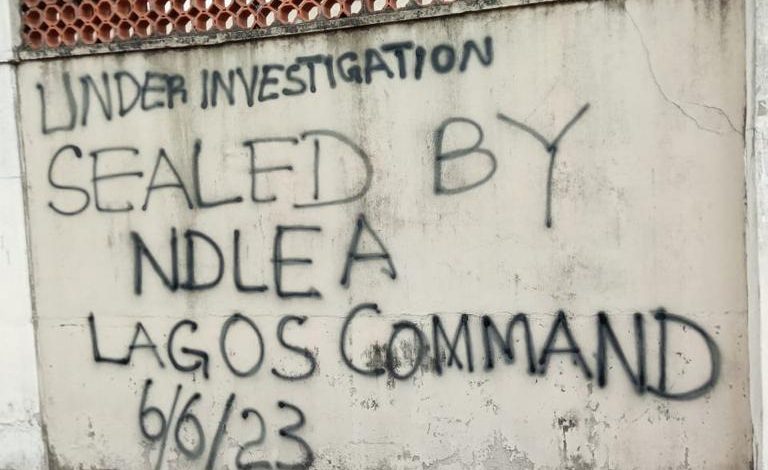 UNDER INVESTIGATION
SEALED BY
NDLEA
LAGOS COMMAND
6/6/23